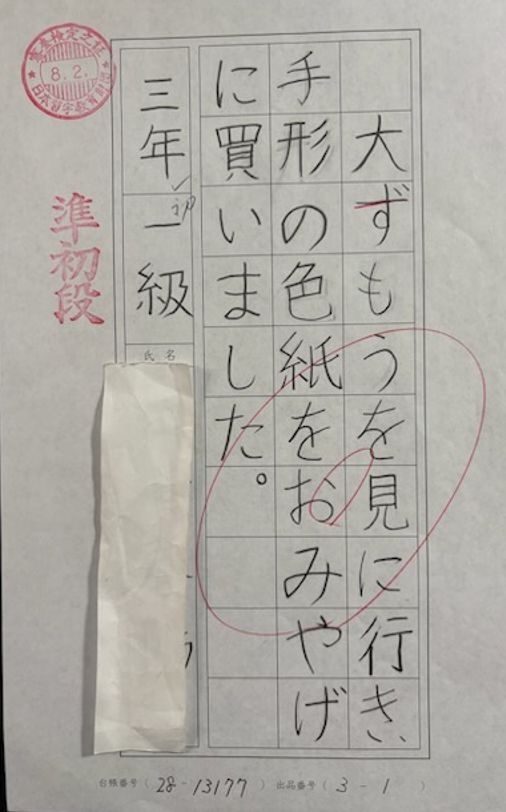 大ずもうを見に行き
手形の色紙をおみやげ
に買いました。
三年一級
初
氏名
準初段
8.2.
台帳番号(28-13177) 出品番号(3-1)